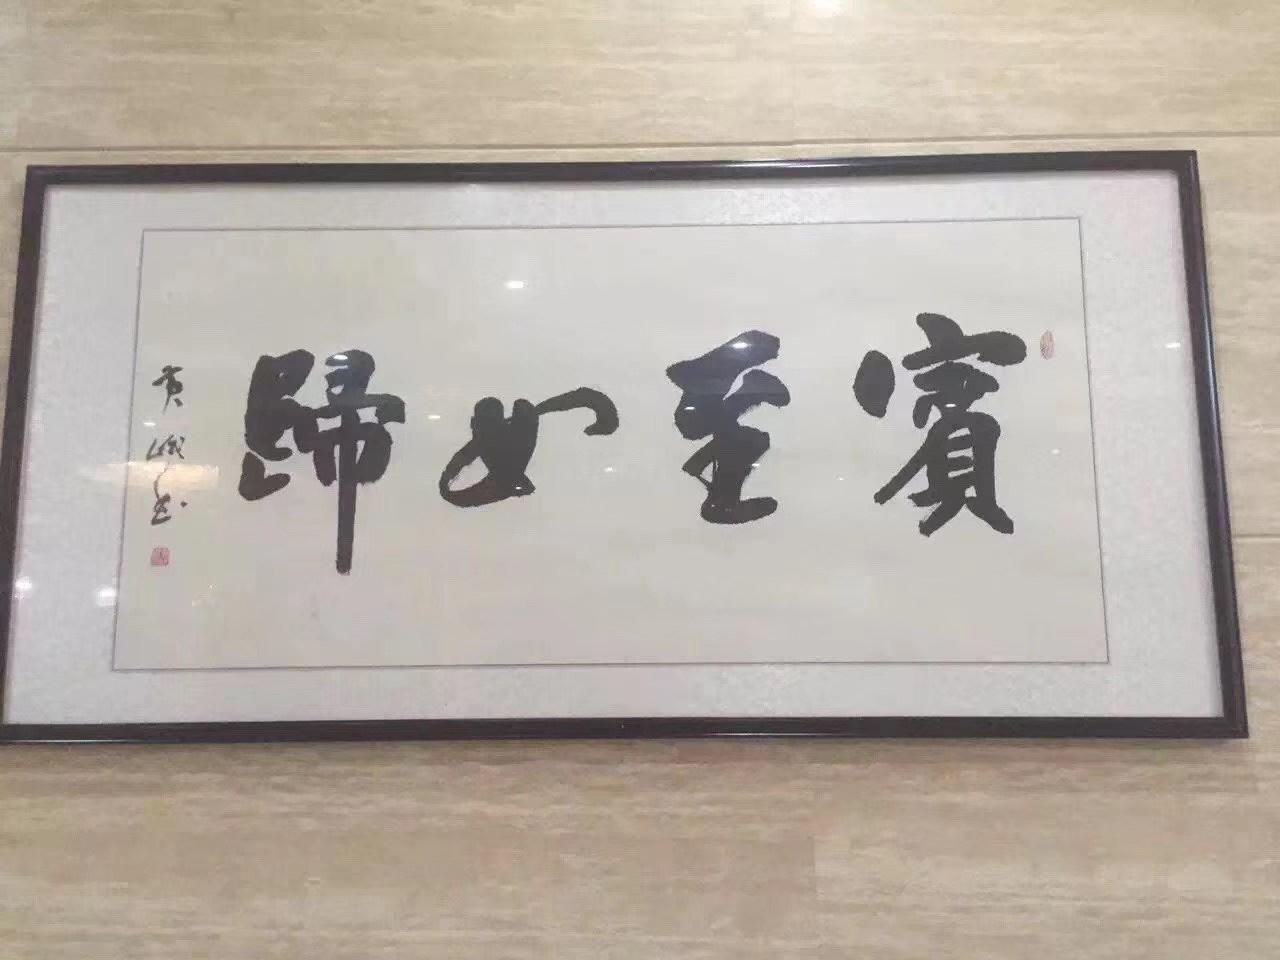 賓至如歸